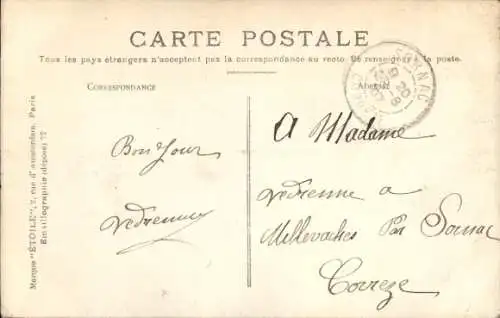 CARTE POSTALE
Tous les pays étrangers n'acceptent pas la correspondance au recto. Se renseigner à la poste.
CORRESPONDANCE
ADRESSE
SORNAC
Bon Jour
Vedrenne
A Madame
Vedrenne a
Millevaches Par Sornac
Correze
Marque "ÉTOILE", 7, rue d'Amsterdam, Paris